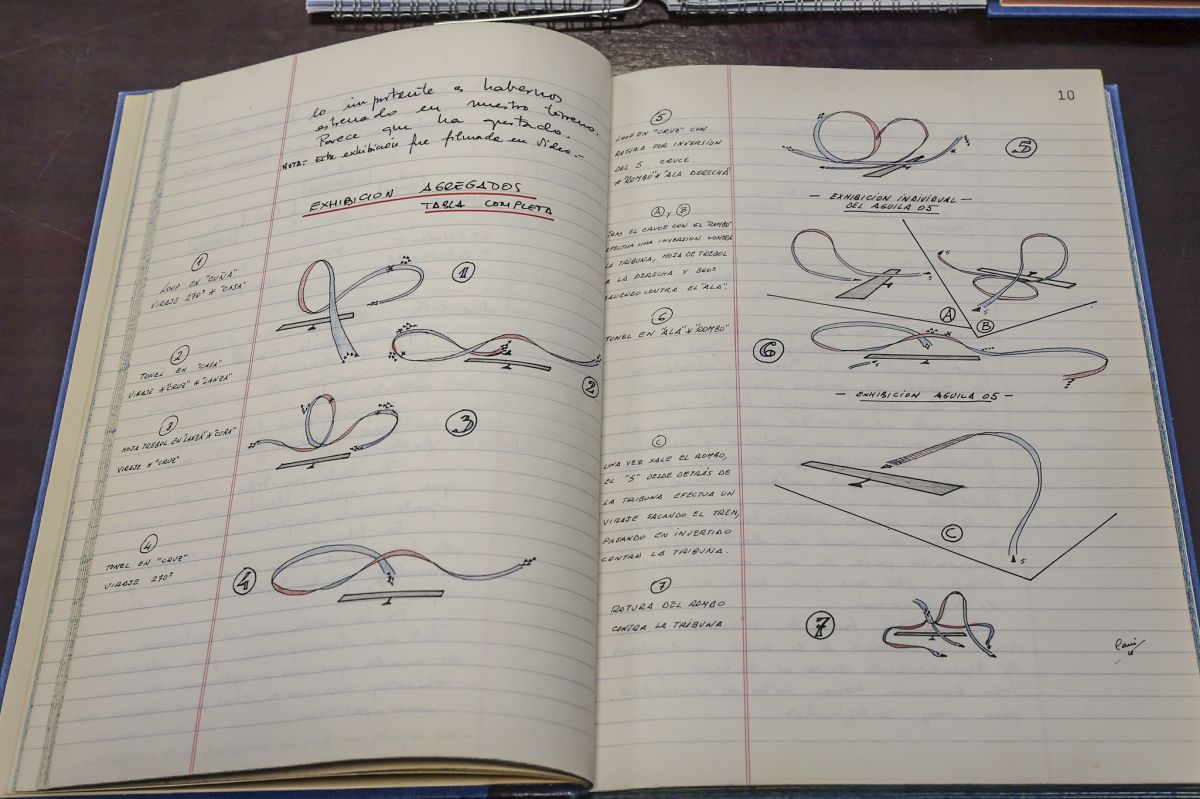 lo importante es habernos
estrenado en nuestro terreno.
Parece que ha gustado.-
NOTA= Esta exhibicion fue filmada en video.-
EXHIBICION AGREGADOS
TABLA COMPLETA
1
LOOP EN "CUÑA"
VIRAJE 270º * "CASA"
1
2
TONEL EN "CASA"
VIRAJE *"CRUZ" * "LANZA"
2
3
HOJA TREBOL EN "LANZA" * "CUÑA"
VIRAJE * "CRUZ"
3
4
TONEL EN "CRUZ"
VIRAJE 270º
4
10
5
LOOP EN "CRUZ" CON
ROTURA POR INVERSIÓN
DEL 5. CRUCE
*"ROMBO"*"ALA DERECHA"
5
— EXHIBICIÓN INDIVIDUAL —
DEL AGUILA 05
A y B
TRAS EL CRUCE CON EL "ROMBO"
EFECTUA UNA INVERSIÓN CONTRA
LA TRIBUNA, HOJA DE TREBOL
A LA DERECHA Y 360º
SALIENDO CONTRA EL "ALA".
5
5
A
B
6
TONEL EN "ALA" * "ROMBO"
6
5
— EXHIBICIÓN AGUILA 05 —
C
UNA VEZ SALE EL ROMBO,
EL "5" DESDE DETRÁS DE
LA TRIBUNA EFECTUA UN
VIRAJE SACANDO EL TREN,
PASANDO EN INVERTIDO
CONTRA LA TRIBUNA.
C
5
7
ROTURA DEL ROMBO
CONTRA LA TRIBUNA
7